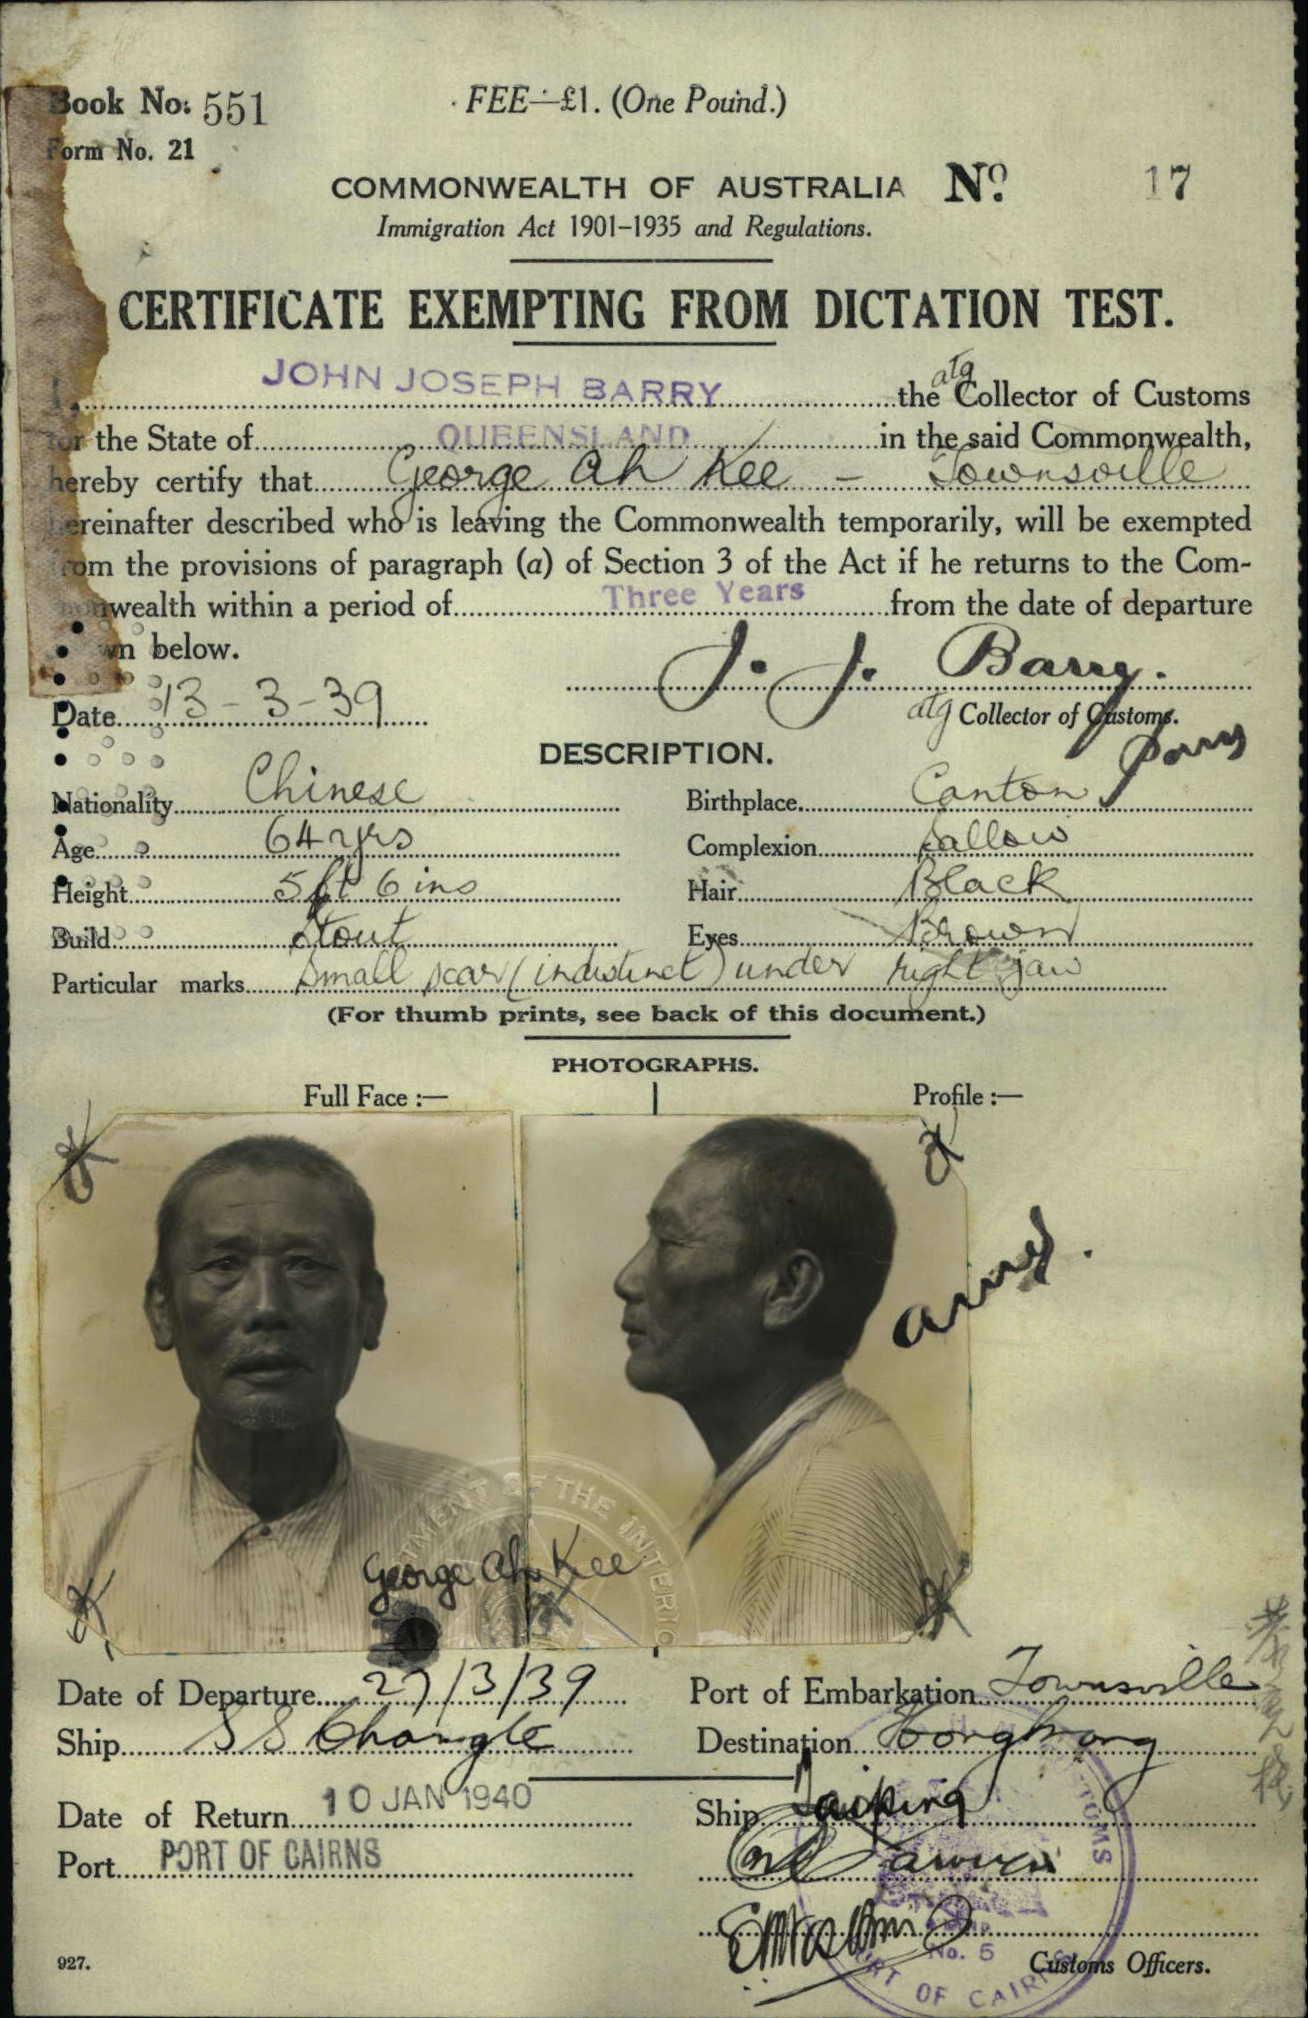 Book No. 551
FEE—£1. (One Pound.)
Form No. 21
COMMONWEALTH OF AUSTRALIA No. 17
Immigration Act 1901–1935 and Regulations.
CERTIFICATE EXEMPTING FROM DICTATION TEST.
I, JOHN JOSEPH BARRY the atg Collector of Customs
for the State of QUEENSLAND in the said Commonwealth,
hereby certify that George Ah Kee – Townsville
hereinafter described who is leaving the Commonwealth temporarily, will be exempted
from the provisions of paragraph (a) of Section 3 of the Act if he returns to the Com-
monwealth within a period of Three Years from the date of departure
wn below.
J. J. Barry.
Date 13-3-39
atg Collector of Customs.
DESCRIPTION.
Nationality Chinese Birthplace Canton
Age 64 yrs Complexion Sallow
Height 5 ft 6 ins Hair Black
Build Stout Eyes Brown
Particular marks Small scar (indistinct) under right jaw
(For thumb prints, see back of this document.)
PHOTOGRAPHS.
Full Face :— Profile :—
George Ah Kee
Date of Departure 27/3/39 Port of Embarkation Townsville
Ship S S Changte Destination Hongkong
Date of Return 10 JAN 1940 Ship Taiping
Port PORT OF CAIRNS
No. 5
PORT OF CAIRNS
Customs Officers.
927.